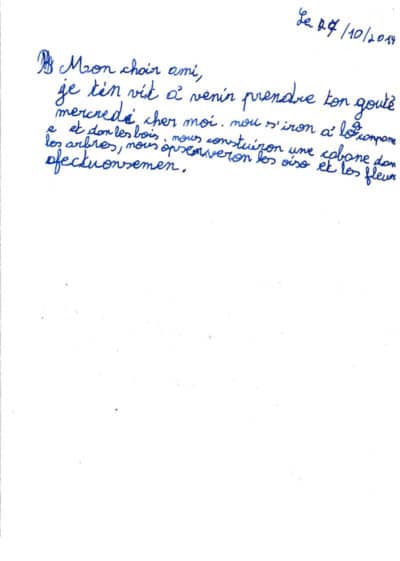 Le 27/10/2017
Mon chair ami,
je t'in vit à venir prendre ton gouté
mercredi cher moi. nou s'iron à la compann
e et don les bois. nous constuiron une cabane dan
les arbres, nous opserveron les oiso et les fleur
afectuonsemen.